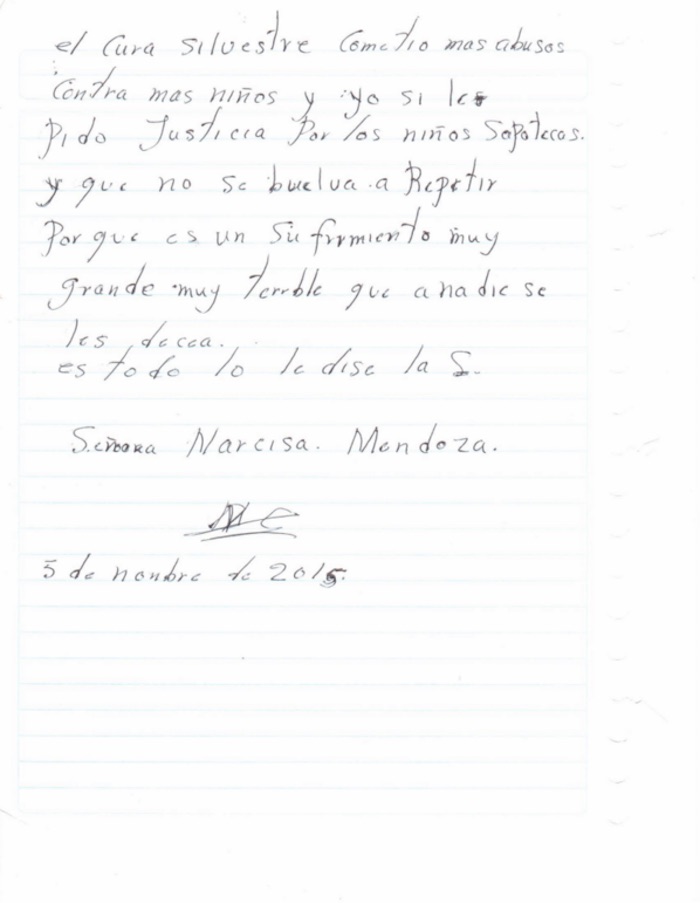 el Cura silvestre Cometio mas abusos
Contra mas niños y yo si les
Pido Justicia Por los niños Sapotecos.
y que no se buelva a Repetir
Porque es un Sufrimiento muy
grande muy terrble que a nadie se
les decea.
es todo lo le dise la S.
Señora Narcisa. Mendoza.
5 de nonbre de 2015.